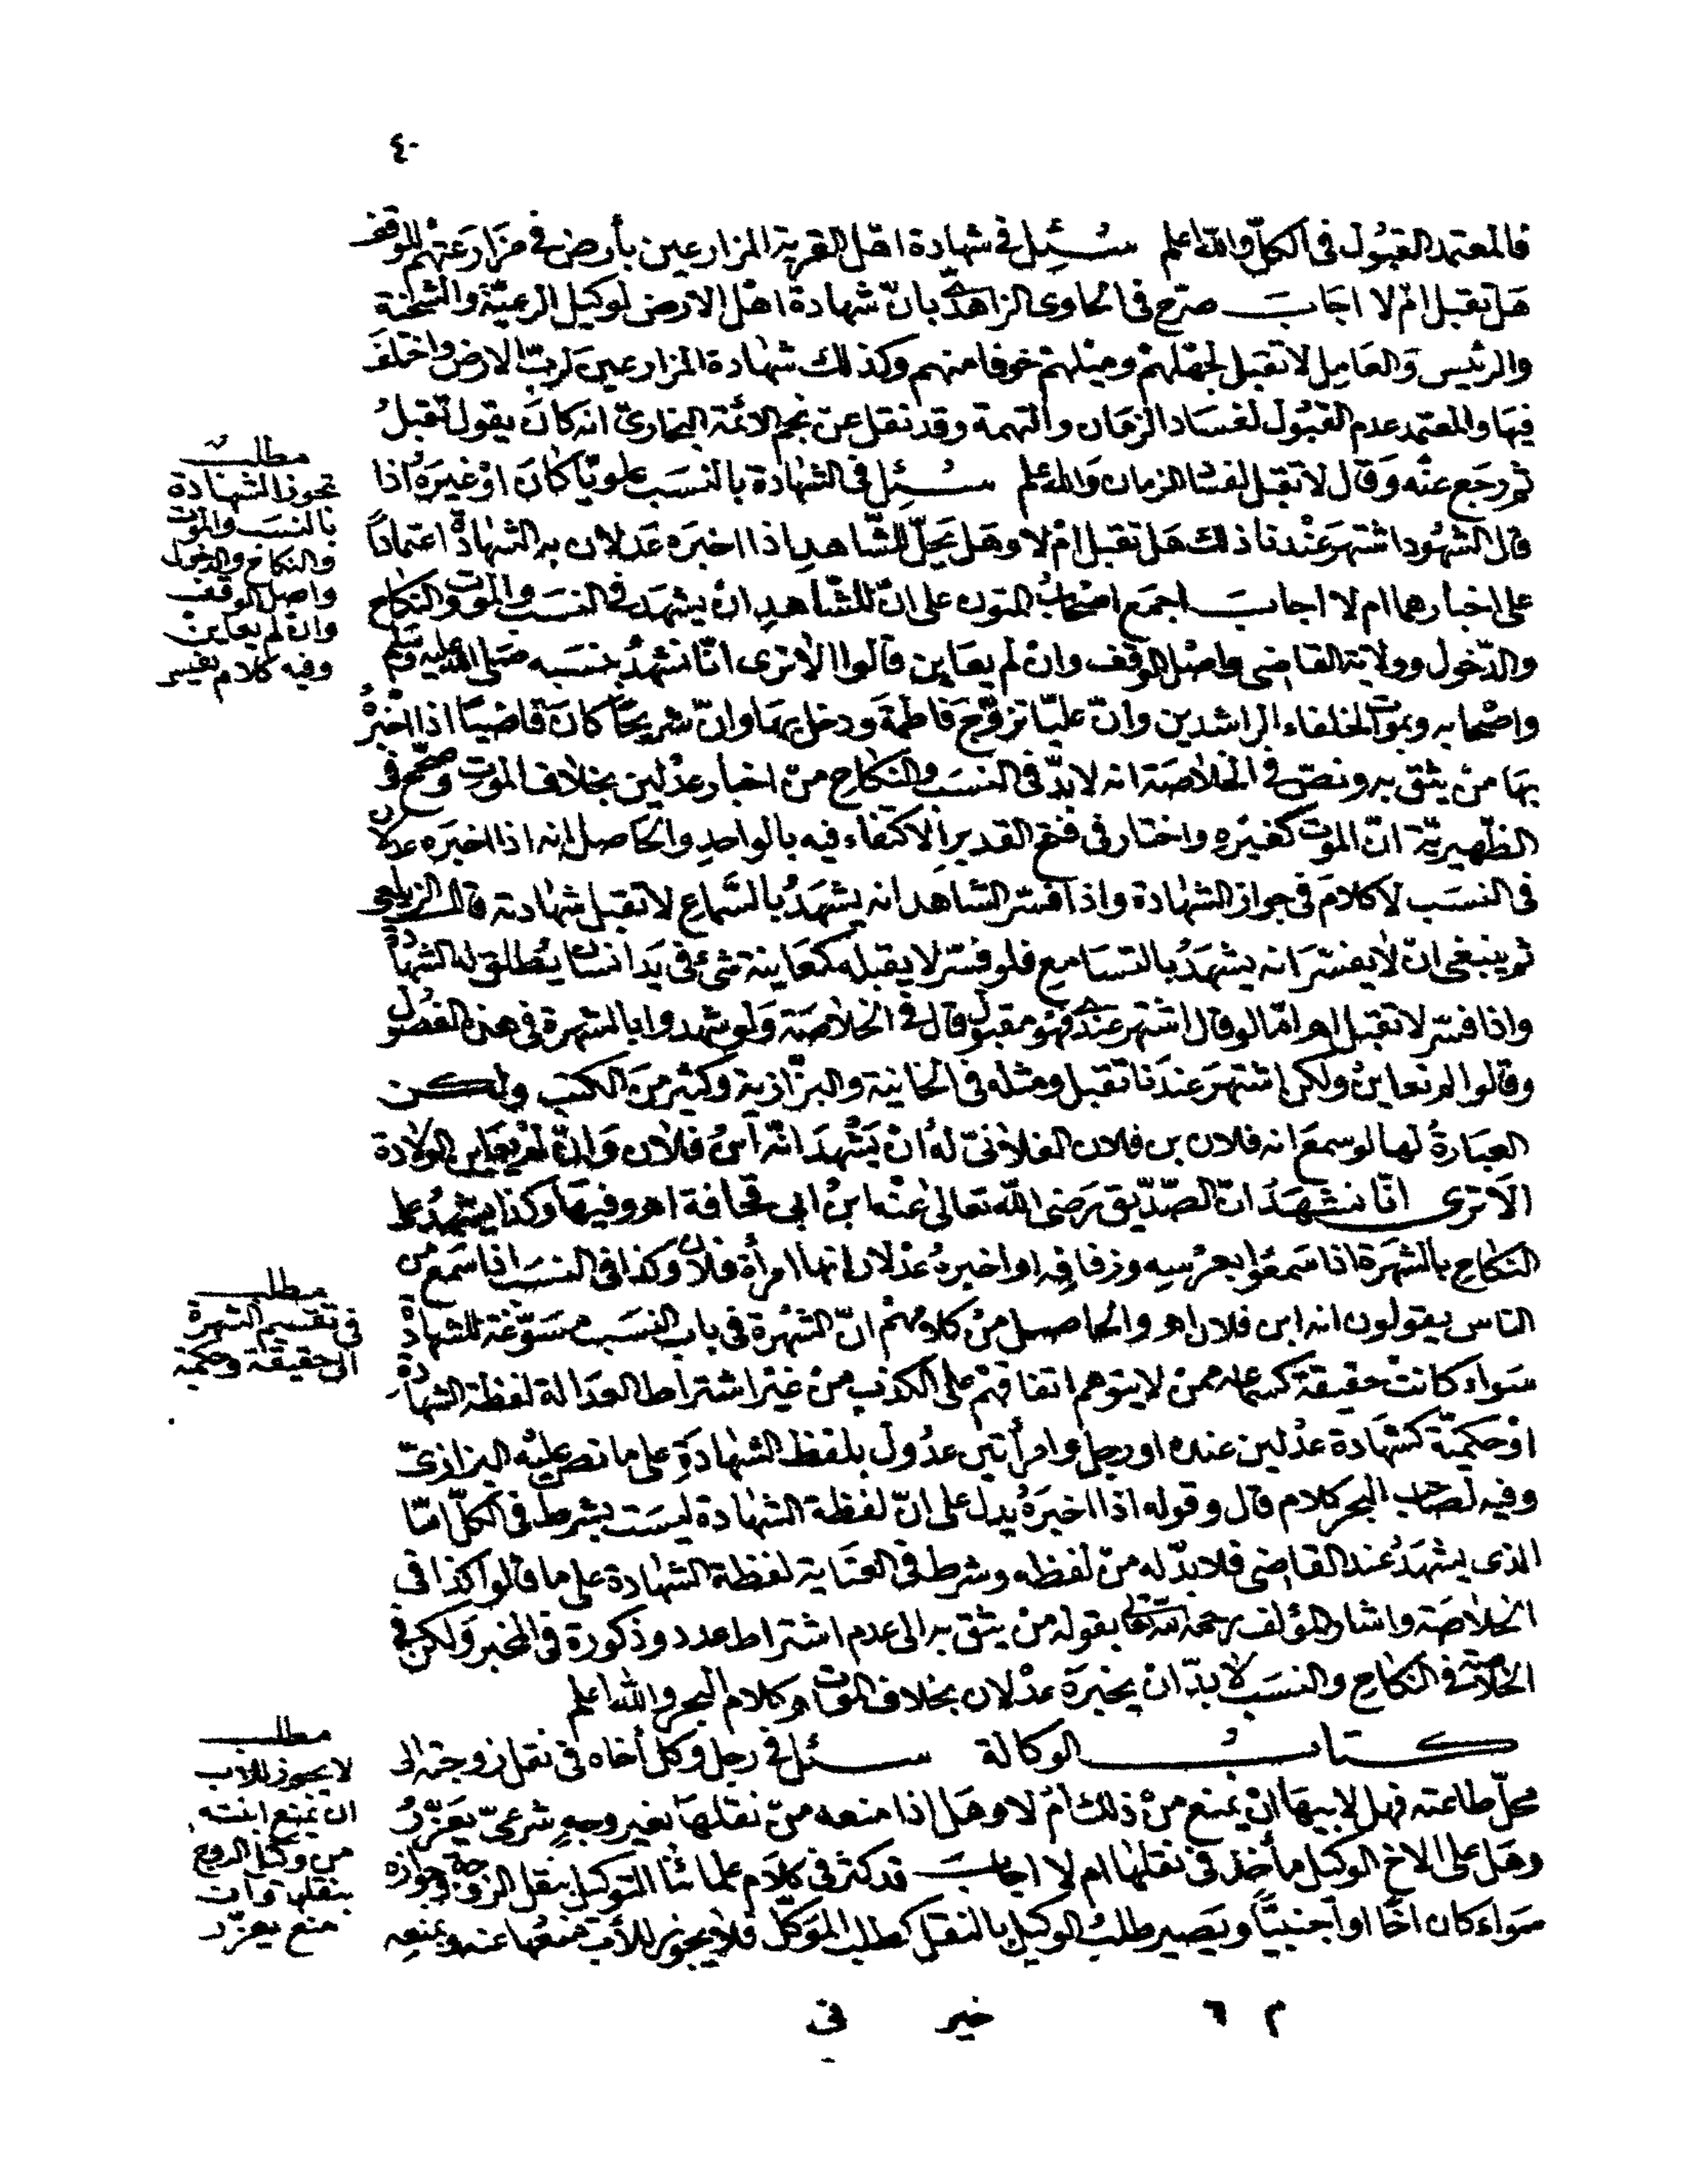 ٤٠
فالمعتمد القبول فى الكلّ والله اعلم سُئِل فى شهادة اهل القرية المزارعين بأرض فى مزارعتهم للوقف
هَل تقبل امْ لا اجَابَ صرّح فى الحاوى الزاهدىّ بانّ شهادة اهْل الارض لوكيل الرعيّة والشحنة
والرئيس وَالعَامِل لا تقبل لجهْلهمْ وميْلهمْ خوفا منهم وكذلك شهادة المزارعين لربّ الارض واختلفَ
فيهَا والمعتمد عدم القبُول لفسَاد الزمَان والتهمة وقد نقل عن نجم الائمّة البخارىّ انه كانَ يقول تقبلُ
ثم رجَع عنْه وَقال لا تقبل لفسَاد الزمان وَالله اعلم سُئِل فى الشهادة بالنسَب علويّا كانَ اوْ غيرَهُ اذا
قال الشهُود اشتهرَ عنْدنا ذلك هَل تقبل امْ لا وهَل يحَلّ للشّاهد اذا اخبرَه عَدلان به الشهادة اعتمادًا
على اخبارهما ام لا اجابَ اجمَع اصْحَابُ المتون على انّ للشّاهدِ انْ يشهَدَ فى النسَب والموْت والنكاح
والدّخول وولاية القاضى واصْل الوقف وانْ لم يعَاين قالوا الا ترى انّا نشهدُ بنسَبه صَلى الله عليه وسَلم
واصْحابه وبموْت الخلفاء الراشدين وانّ عليّا تزوّجَ فاطمَة ودخل بهَا وانّ شريحًا كانَ قاضيًا اذا اخبرهُ
بهَا منْ يثق به ونصّ فى الخلاصَة انه لا بدّ فى النسَب والنكاح منْ اخبار عدْلين بخلاف الموت وصحّح فى
الظّهيريّة انّ الموت كغيْرهِ واختار فى فتح القدير الاكتفاء فيه بالواحدِ والحَاصل انه اذا اخبرَه عدلان
فى النسَب لا كلامَ فى جواز الشهادة واذا فسّر الشاهد انه يشهَدُ بالسَّماع لا تقبل شهادته قال الزيلعى
ثم ينبغى انْ لا يفسّرَ انه يشهَدُ بالتسَامع فلو فسّر لا يقبله كمعَاينة شئ فى يَد انسَان يُطلق له الشهادة
واذا فسّر لا تقبل اهـ امّا لو قال اشتهر عندى فهُو مقبول قال فى الخلاصَة وَلو شهدوا بالشهرة فى هذه الفصُول
وقالوا لم نعاينْ ولكن اشتهرَ عندَنا تقبل ومثله فى الخانية والبزّازية وكثير منَ الكتب ولكن
العبَارةُ لها لو سمعَ انه فلان بن فلان الفلانىّ لهُ انْ يَشْهدَ انّه ابنُ فلان وَانْ لمْ يعَاين الولادة
الَا ترى انّا نشهَدُ انّ الصّدّيق رَضى الله تعالى عنْه ابنُ ابى قحافة اهـ وفيهَا وكذا يشهدُ على
النكاح بالشهرَة اذا سَمعُوا بعرْسِه وزفافِه او اخبرهُ عدْلان انها امرأة فلان وكذا فى النسَب اذا سَمعَ من
الناس يقولون انه ابن فلان اهـ والحاصل منْ كلامهمْ انّ الشهْرة فى باب النسَب مسَوّغة للشهادة
سَواء كانتْ حقيقةً كسماعه ممنْ لا يتوهم اتفاقهمْ على الكذب منْ غيْر اشتراط العدَالة لفظة الشهادة
اوْ حكميّة كشهَادة عدْلين عنده او رجل وامرأتين عدُول بلفظ الشهادَةِ على ما نصّ عليْه البزازىّ
وفيه لصَاحب البحر كلام قال وقوله اذا اخبرَهُ يدل على انّ لفظة الشهادة ليسَت بشرط فى الكلّ امّا
الذى يشهَدُ عند القاضى فلا بدّ له منْ لفظه وشرط فى العنَاية لفظة الشهادة على ما قالوا كذا فى
الخلاصَة واشار المؤلف رحمَه الله تعالى بقوله منْ يثق به الى عدم اشتراط عدد وذكورة فى المخبر وَلكن فى
الخلاصة فى النكاح والنسَب لا بدّ انْ يخبرَهُ عدْلان بخلاف الموت اهـ كلام البحر والله اعلم
كتابُ الوكالة سئل فى رجل وكل أخاه فى نقل زوجته الى
محلّ طاعته فهل لابيهَا انْ يمنع منْ ذلك امْ لا وهَل اذا منعه منْ نقلهَا بغير وجهٍ شرعىّ يعَزّرُ
وهَل على الاخ الوكيل مأخذ فى نقلهَا ام لا اجابَ قد كثر فى كلام علمائنا التوكيل بنقل الزوجة وجوازه
سَواء كان اخًا او أجنبيًّا ويَصير طلبُ الوكيل بالنقل كطلب الموَكّل فلا يجوز للأب منعُها عنه وبمنعِه
مطلب
تجوز الشهَادة
بالنسَب والموْت
والنكاح والدخول
واصل الوقف
وان لم يعاين
وفيه كلام نفيس
مطلب
فى تقسيم الشهرة
الى حقيقة وحكمية
مطلب
لا يجوز للاب
ان يمنع ابنته
من وكيل الزوج
بنقلها فان
منع يعزّر
م ٦ خير فى